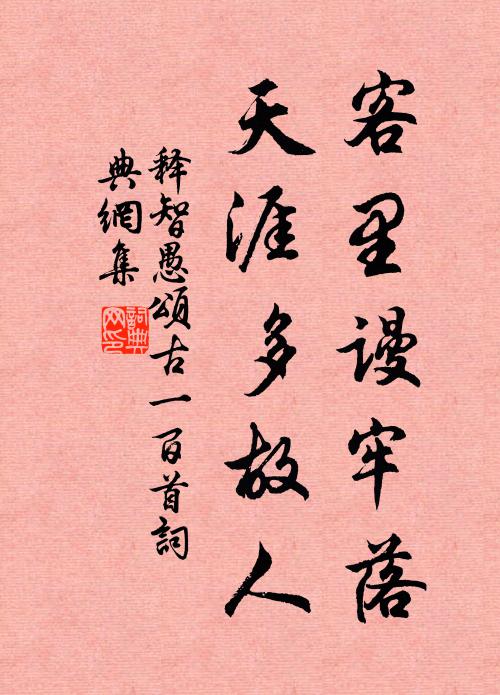 客里谩牢落
天涯多故人
释智愚頌古一百首詞
典網集
詞典
网印